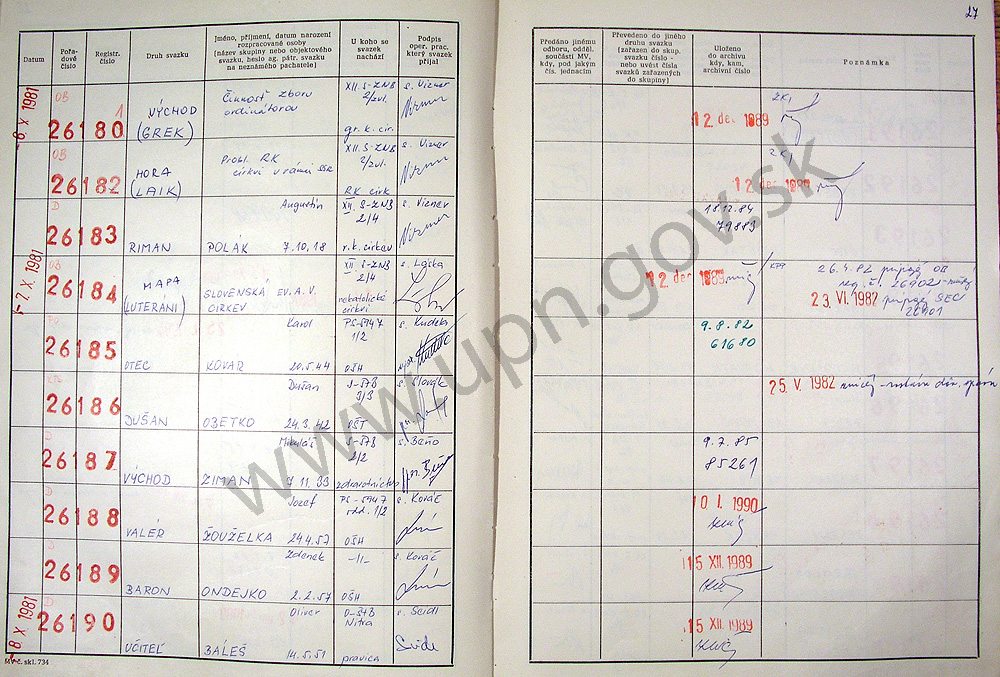 27
Datum
Pořa-
dové
číslo
Registr.
číslo
Druh svazku
Jméno, příjmení, datum narození
rozpracované osoby
(název skupiny nebo objektového
svazku, heslo ag. pátr. svazku
na neznámého pachatele)
U koho se
svazek
nachází
Podpis
oper. prac.
který svazek
přijal
Předáno jinému
odboru, odděl.
součásti MV,
kdy, pod jakým
čís. jednacím
Převedeno do jiného
druhu svazku
(zařazen do skup.
svazku číslo -
nebo uvést čísla
svazků zařazených
do skupiny)
Uloženo
do archivu
kdy, kam,
archivní číslo
Poznámka
-6. X 1981
OB
1
26180
VÝCHOD
(GREK)
Činnosť zboru
ordinátorov
XII. S-ZNB
2/zvl.
gr. k. cir.
s. Vizner
12. dec. 1989
OB
26182
HORA
(LAIK)
Probl. RK
cirkvi v rámci SSR
XII. S-ZNB
2/zvl.
RK cirk
s. Vizner
12. dec. 1989
D
26183
RIMAN
Augustín
POLÁK 7.10.18
XII. S-ZNB
2/4
r.k. cirkev
s. Vizner
18.12.84
79883
-7. X 1981
OB
26184
MAPA
(LUTERÁNI)
SLOVENSKÁ EV. A. V.
CIRKEV
XII S-ZNB
2/4
nekatolícke
cirkvi
12. dec. 1989
26.4.82 OB
reg. č. 26902
23. VI. 1982
26901
26185
OTEC
Karol
KOVÁR 20.5.44
PS-5947
1/2
OŠH
s. Kudela
9.8.82
61680
26186
DUŠAN
Dušan
OBETKO 24.3.42
S-ŠTB
3/3
s. Slovák
25. V. 1982
D
26187
VÝCHOD
Mikuláš
ZIMAN 7.11.33
S-ŠTB
2/2
zdravotníctvo
s. Beňo
9.7.85
85261
D
26188
VALÉR
Jozef
ŽOUŽELKA 24.4.57
PS-5947
odd. 1/2
OŠH
s. Kováč
10. I. 1990
D
26189
BARON
Zdenek
ONDEJKO 2.2.57
-II-
OŠH
s. Kováč
15. XII. 1989
-8. X 1981
26190
UČITEĽ
Oliver
BALEŠ 14.5.51
O-ŠTB
Nitra
pravica
s. Seidl
15. XII. 1989
MV č. skl. 734
www.upn.gov.sk